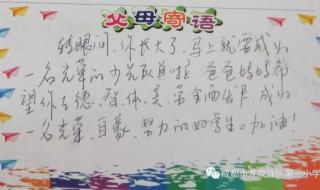 父母寄语
转眼间，你长大了，马上就要成为
一名光荣的少先队员啦，爸爸妈妈希
望你在德、智、体、美、劳全面出息，成为
一名光荣、自豪、努力的好学生。加油！
成都市龙泉驿区第一小学